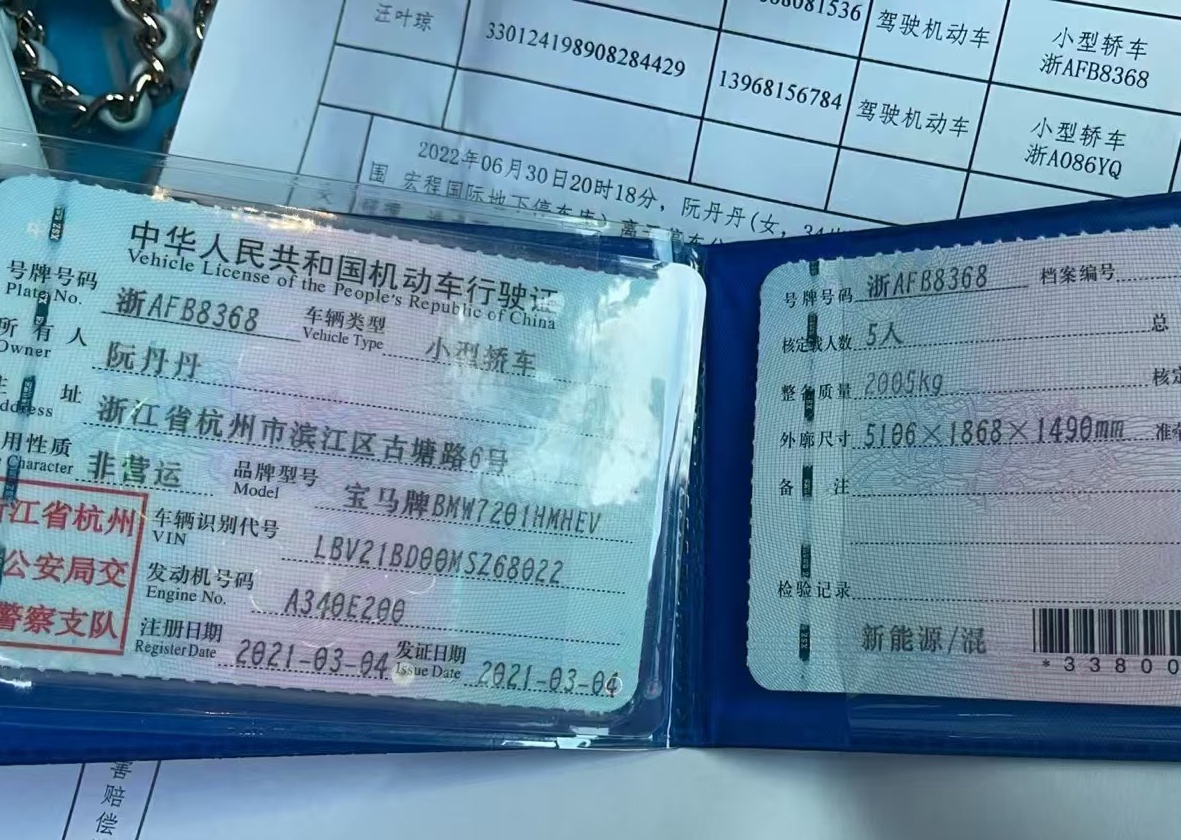 汪叶琼
330124198908284429
081536
13968156784
驾驶机动车
驾驶机动车
小型轿车
浙AFB8368
小型轿车
浙A086YQ
2022年06月30日20时18分，阮丹丹(女，34
围 宏程国际地下停车库)离
中华人民共和国机动车行驶证
Vehicle License of the People's Republic of China
号牌号码 浙AFB8368 车辆类型 小型轿车
Plate No. Vehicle Type
所有人 阮丹丹
Owner
址 浙江省杭州市滨江区古塘路6号
用性质 非营运 品牌型号 宝马牌BMW7201HMHEV
Character Model
江省杭州
公安局交
警察支队
车辆识别代号 LBV21BD00MSZ68022
VIN
发动机号码 A340E200
Engine No.
注册日期 2021-03-04 发证日期 2021-03-04
Register Date Issue Date
号牌号码 浙AFB8368 档案编号
核定载人数 5人 总
整备质量 2005kg 核定
外廓尺寸 5106×1868×1490mm 准牵
备注
检验记录
新能源/混
*33800
害
赔
偿